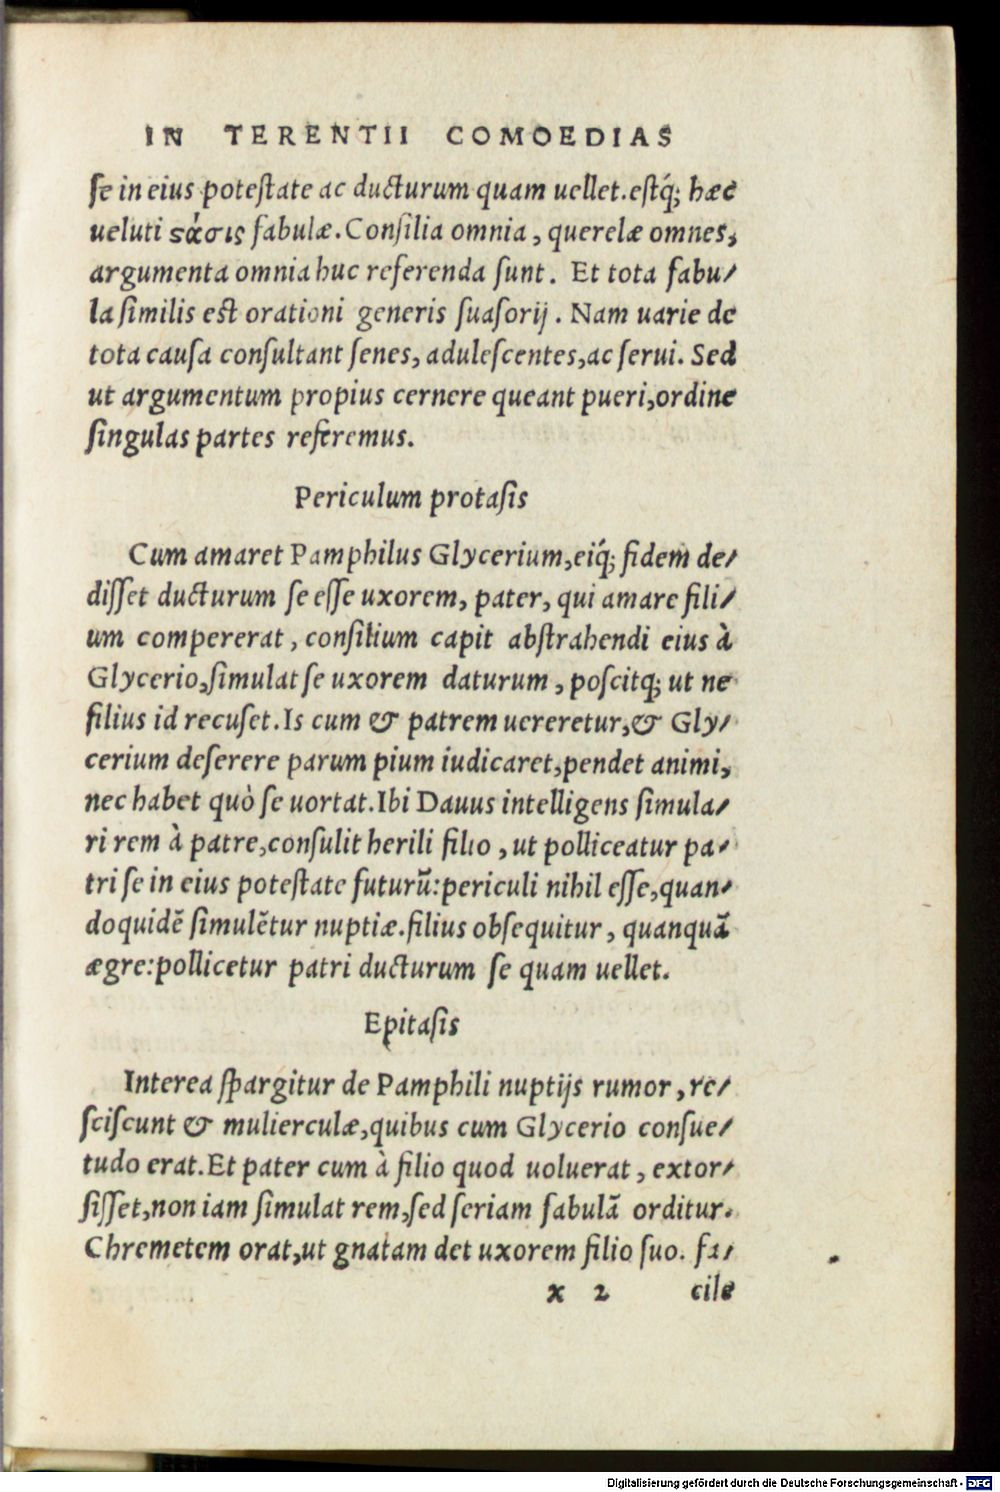 IN TERENTII COMOEDIAS
ſe in eius poteſtate ac ducturum quam uellet. eſtq́; hæc
ueluti ϛάσις fabulæ. Conſilia omnia, querelæ omnes,
argumenta omnia huc referenda ſunt. Et tota fabu/
la ſimilis eſt orationi generis ſuaſorij. Nam uarie de
tota cauſa conſultant ſenes, aduleſcentes, ac ſerui. Sed
ut argumentum propius cernere queant pueri, ordine
ſingulas partes referemus.
Periculum protaſis
Cum amaret Pamphilus Glycerium, eiq́; fidem de/
diſſet ducturum ſe eſſe uxorem, pater, qui amare fili/
um compererat, conſilium capit abſtrahendi eius à
Glycerio, ſimulat ſe uxorem daturum, poſcitq; ut ne
filius id recuſet. Is cum & patrem uereretur, & Gly/
cerium deſerere parum pium iudicaret, pendet animi,
nec habet quò ſe uortat. Ibi Dauus intelligens ſimula/
ri rem à patre, conſulit herili filio, ut polliceatur pa/
tri ſe in eius poteſtate futurũ: periculi nihil eſſe, quan/
doquidẽ ſimulẽtur nuptiæ. filius obſequitur, quanquã
ægre: pollicetur patri ducturum ſe quam uellet.
Epitaſis
Interea ſpargitur de Pamphili nuptijs rumor, re/
ſciſcunt & mulierculæ, quibus cum Glycerio conſue/
tudo erat. Et pater cum à filio quod uoluerat, extor/
ſiſſet, non iam ſimulat rem, ſed ſeriam fabulã orditur.
Chremetem orat, ut gnatam det uxorem filio ſuo. fa/
x 2 cile
Digitalisierung gefördert durch die Deutsche Forschungsgemeinschaft - DFG